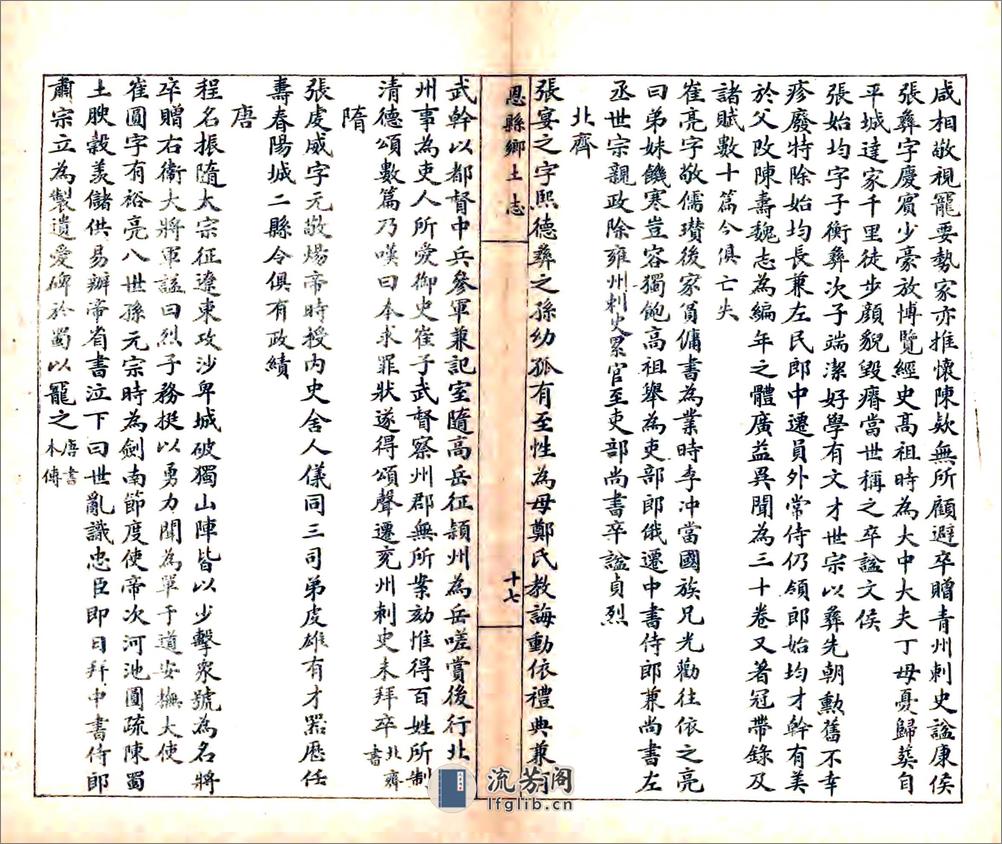 咸相敬視寵要勢家亦推懷陳欵無所顧避卒贈青州刺史謚康侯
張彝字慶賓少豪放博覽經史高祖時為大中大夫丁母憂歸葬自
平城達家千里徒步顏貌毀瘠當世稱之卒謚文侯
張始均字子衡彝次子端潔好學有文才世宗以彝先朝勲舊不幸
疹廢特除始均長兼左民郎中遷員外常侍仍領郎始均才幹有美
於父改陳壽魏志為編年之體廣益異聞為三十卷又著冠帶錄及
諸賦數十篇今俱亡失
崔亮字敬儒瓚後家貧傭書為業時李冲當國族兄光勸往依之亮
曰弟妹饑寒豈容獨飽高祖舉為吏部郎俄遷中書侍郎兼尚書左
丞世宗親政除雍州刺史累官至吏部尚書卒謚貞烈
北齊
張宴之字熙德彝之孫幼孤有至性為母鄭氏教誨動依禮典兼
恩縣鄉土志
十七
武幹以都督中兵參軍兼記室隨高岳征潁州為岳嗟賞後行北
州事為吏人所愛御史崔子武督察州郡無所案劾惟得百姓所制
清德頌數篇乃嘆曰本求罪狀遂得頌聲遷兖州刺史未拜卒北齊書
隋
張虔威字元敬煬帝時授內史舍人儀同三司弟虔雄有才器歷任
壽春陽城二縣令俱有政績
唐
程名振隋太宗征遼東攻沙卑城破獨山陣皆以少擊衆號為名將
卒贈右衛大將軍謚曰烈子務挺以勇力聞為單于道安撫大使
崔圓字有裕亮八世孫元宗時為劍南節度使帝次河池圓疏陳蜀
土腴穀羨儲供易辦帝省書泣下曰世亂識忠臣即日拜中書侍郎
肅宗立為製遺愛碑於蜀以寵之唐書本傳
流芳阁
lfglib.cn